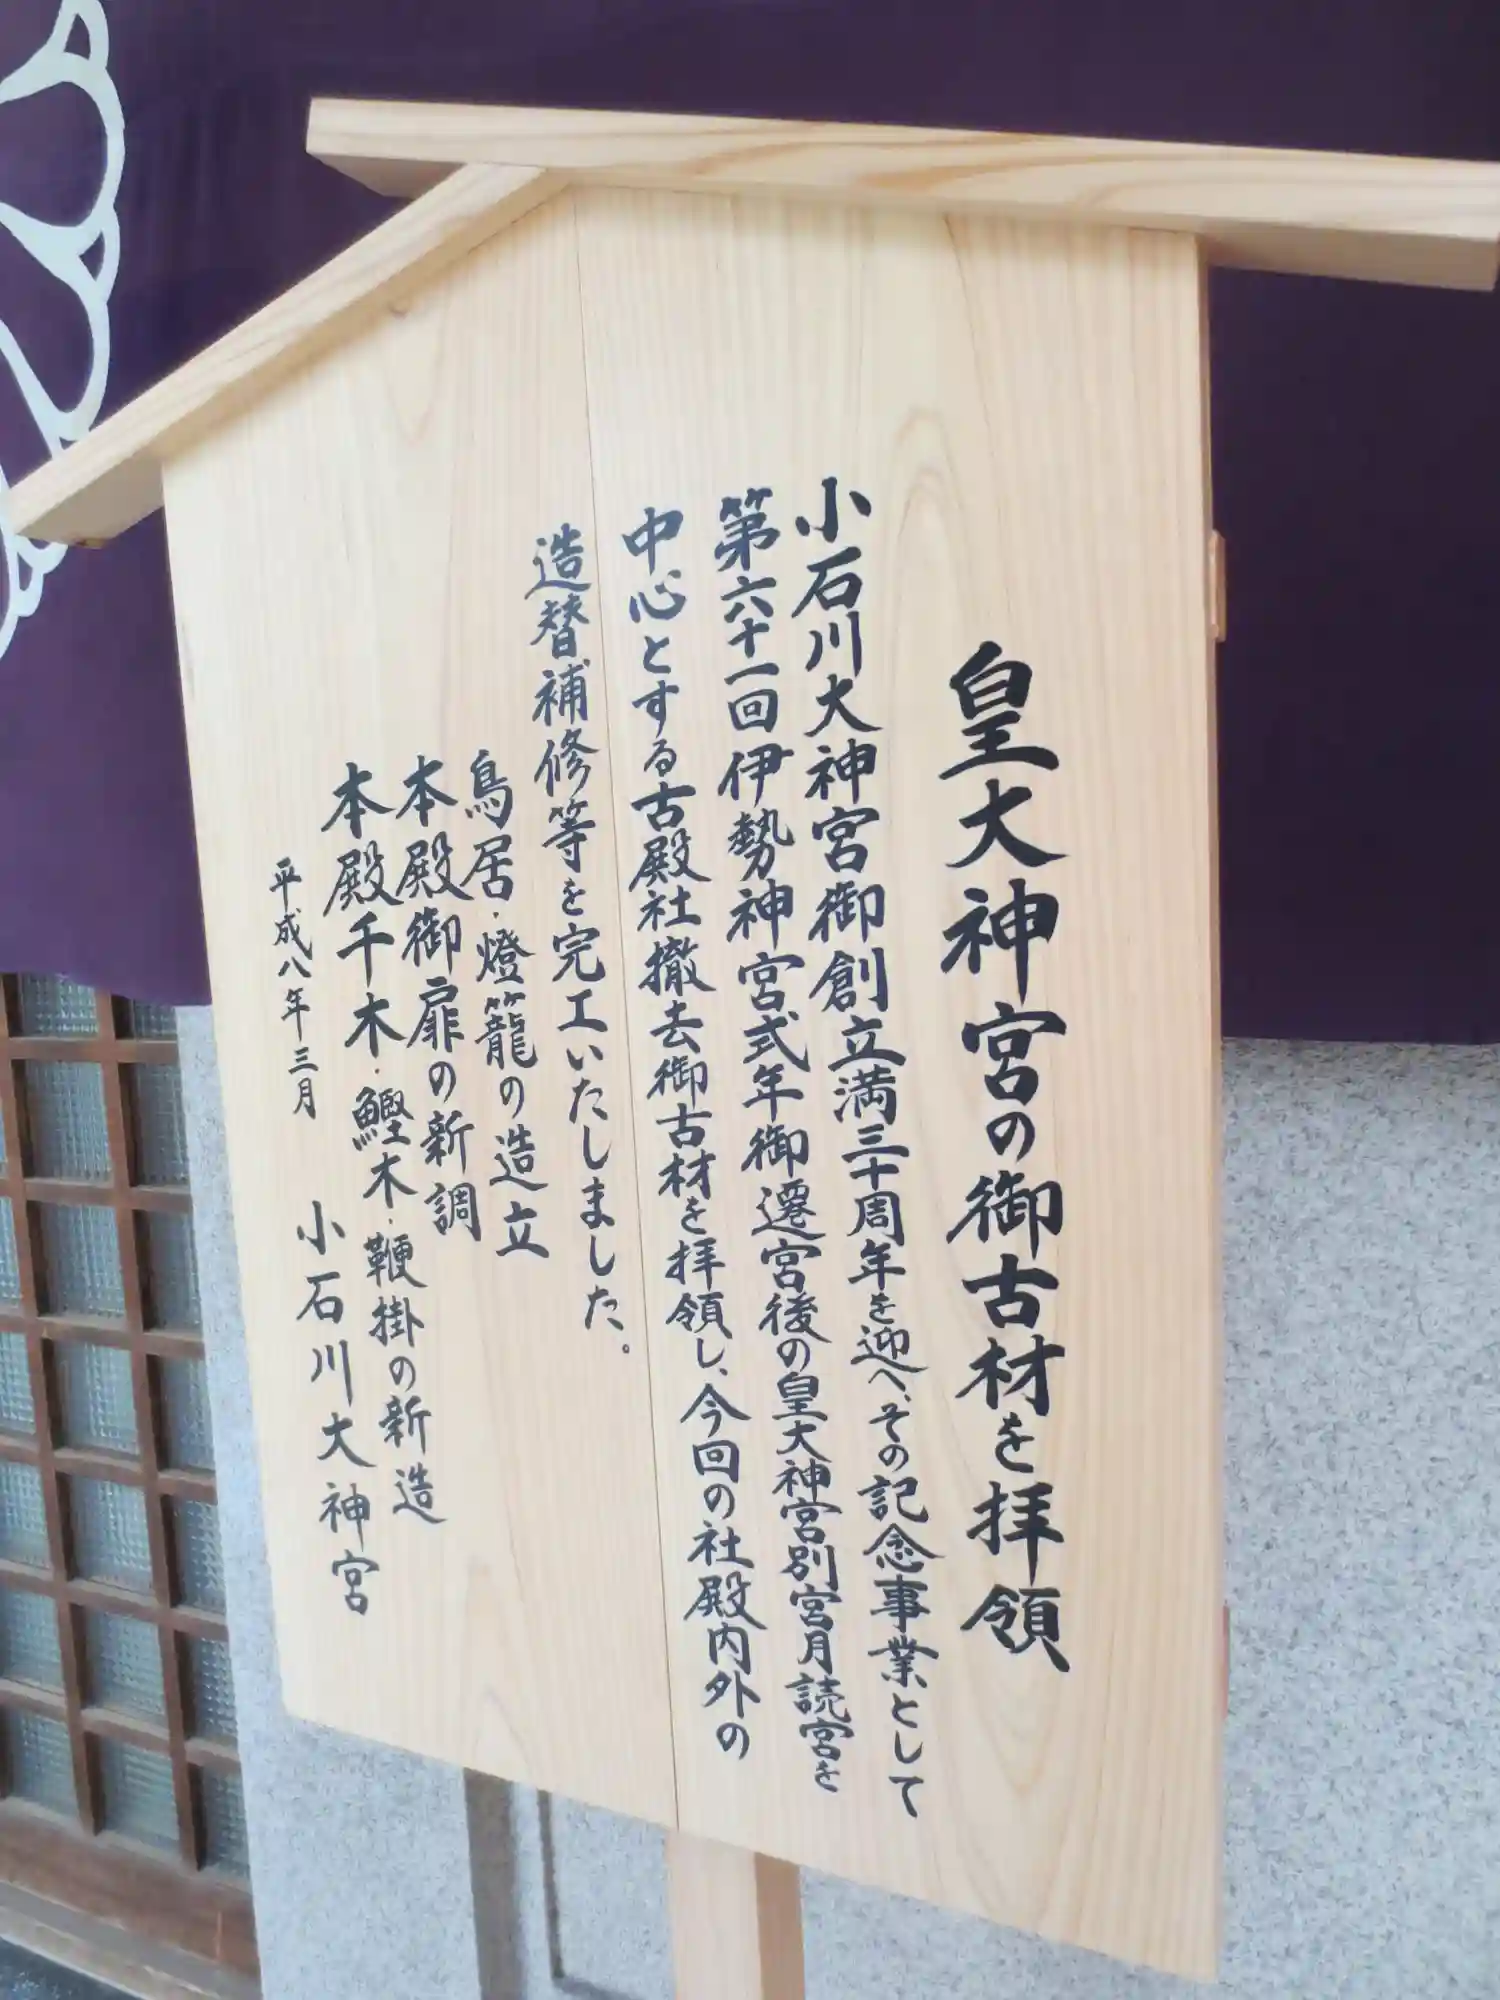 皇大神宮の御古材を拝領
小石川大神宮御創立満三十周年を迎へ、その記念事業として
第六十一回伊勢神宮式年御遷宮後の皇大神宮別宮月読宮を
中心とする古殿社撤去御古材を拝領し、今回の社殿内外の
造替補修等を完工いたしました。
鳥居・燈籠の造立
本殿御扉の新調
本殿千木・鰹木・鞭掛の新造
平成八年三月 小石川大神宮